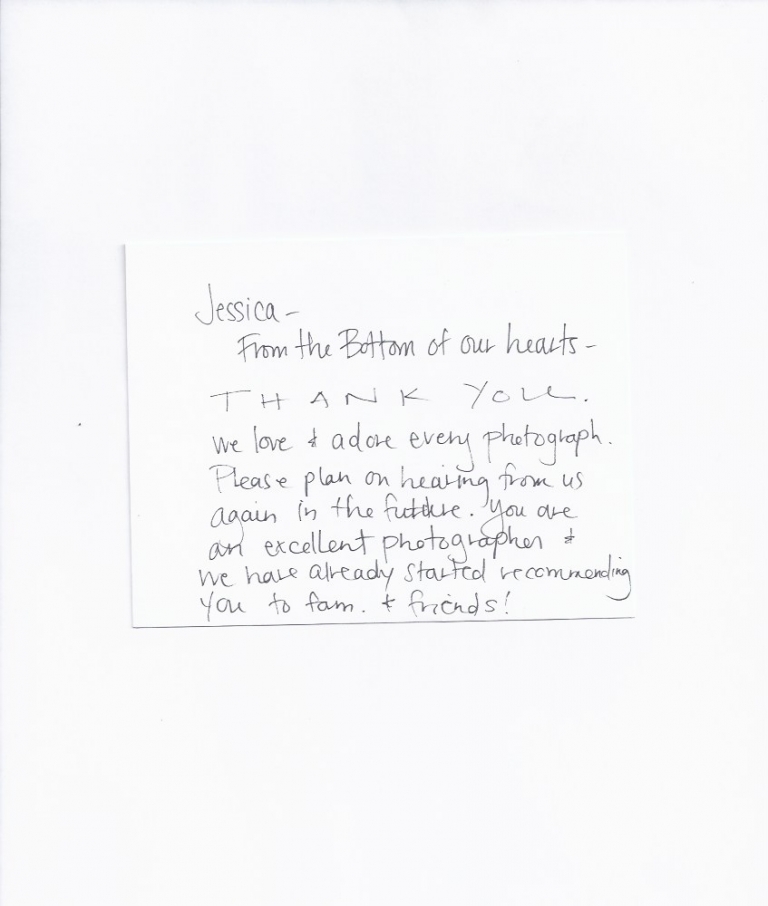 Jessica –
From the Bottom of our hearts –
THANK YOU.
We love & adore every photograph.
Please plan on hearing from us
again in the future. You are
an excellent photographer &
we have already started recommending
you to fam. & friends!